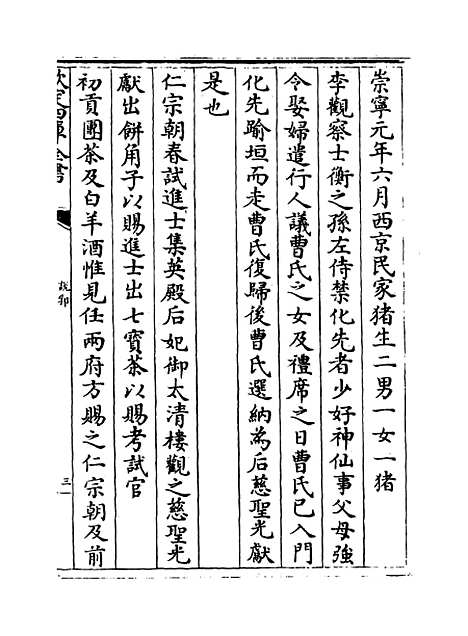 崇寧元年六月西京民家猪生二男一女一猪
李觀察士衡之孫左侍禁化先者少好神仙事父母強
令娶婦遣行人議曹氏之女及禮席之日曹氏已入門
化先踰垣而走曹氏復歸後曹氏選納為后慈聖光獻
是也
仁宗朝春試進士集英殿后妃御太清樓觀之慈聖光
獻出餅角子以賜進士出七寳茶以賜考試官
初貢團茶及白羊酒惟見任兩府方賜之仁宗朝及前
欽定四庫全書
説郛
三